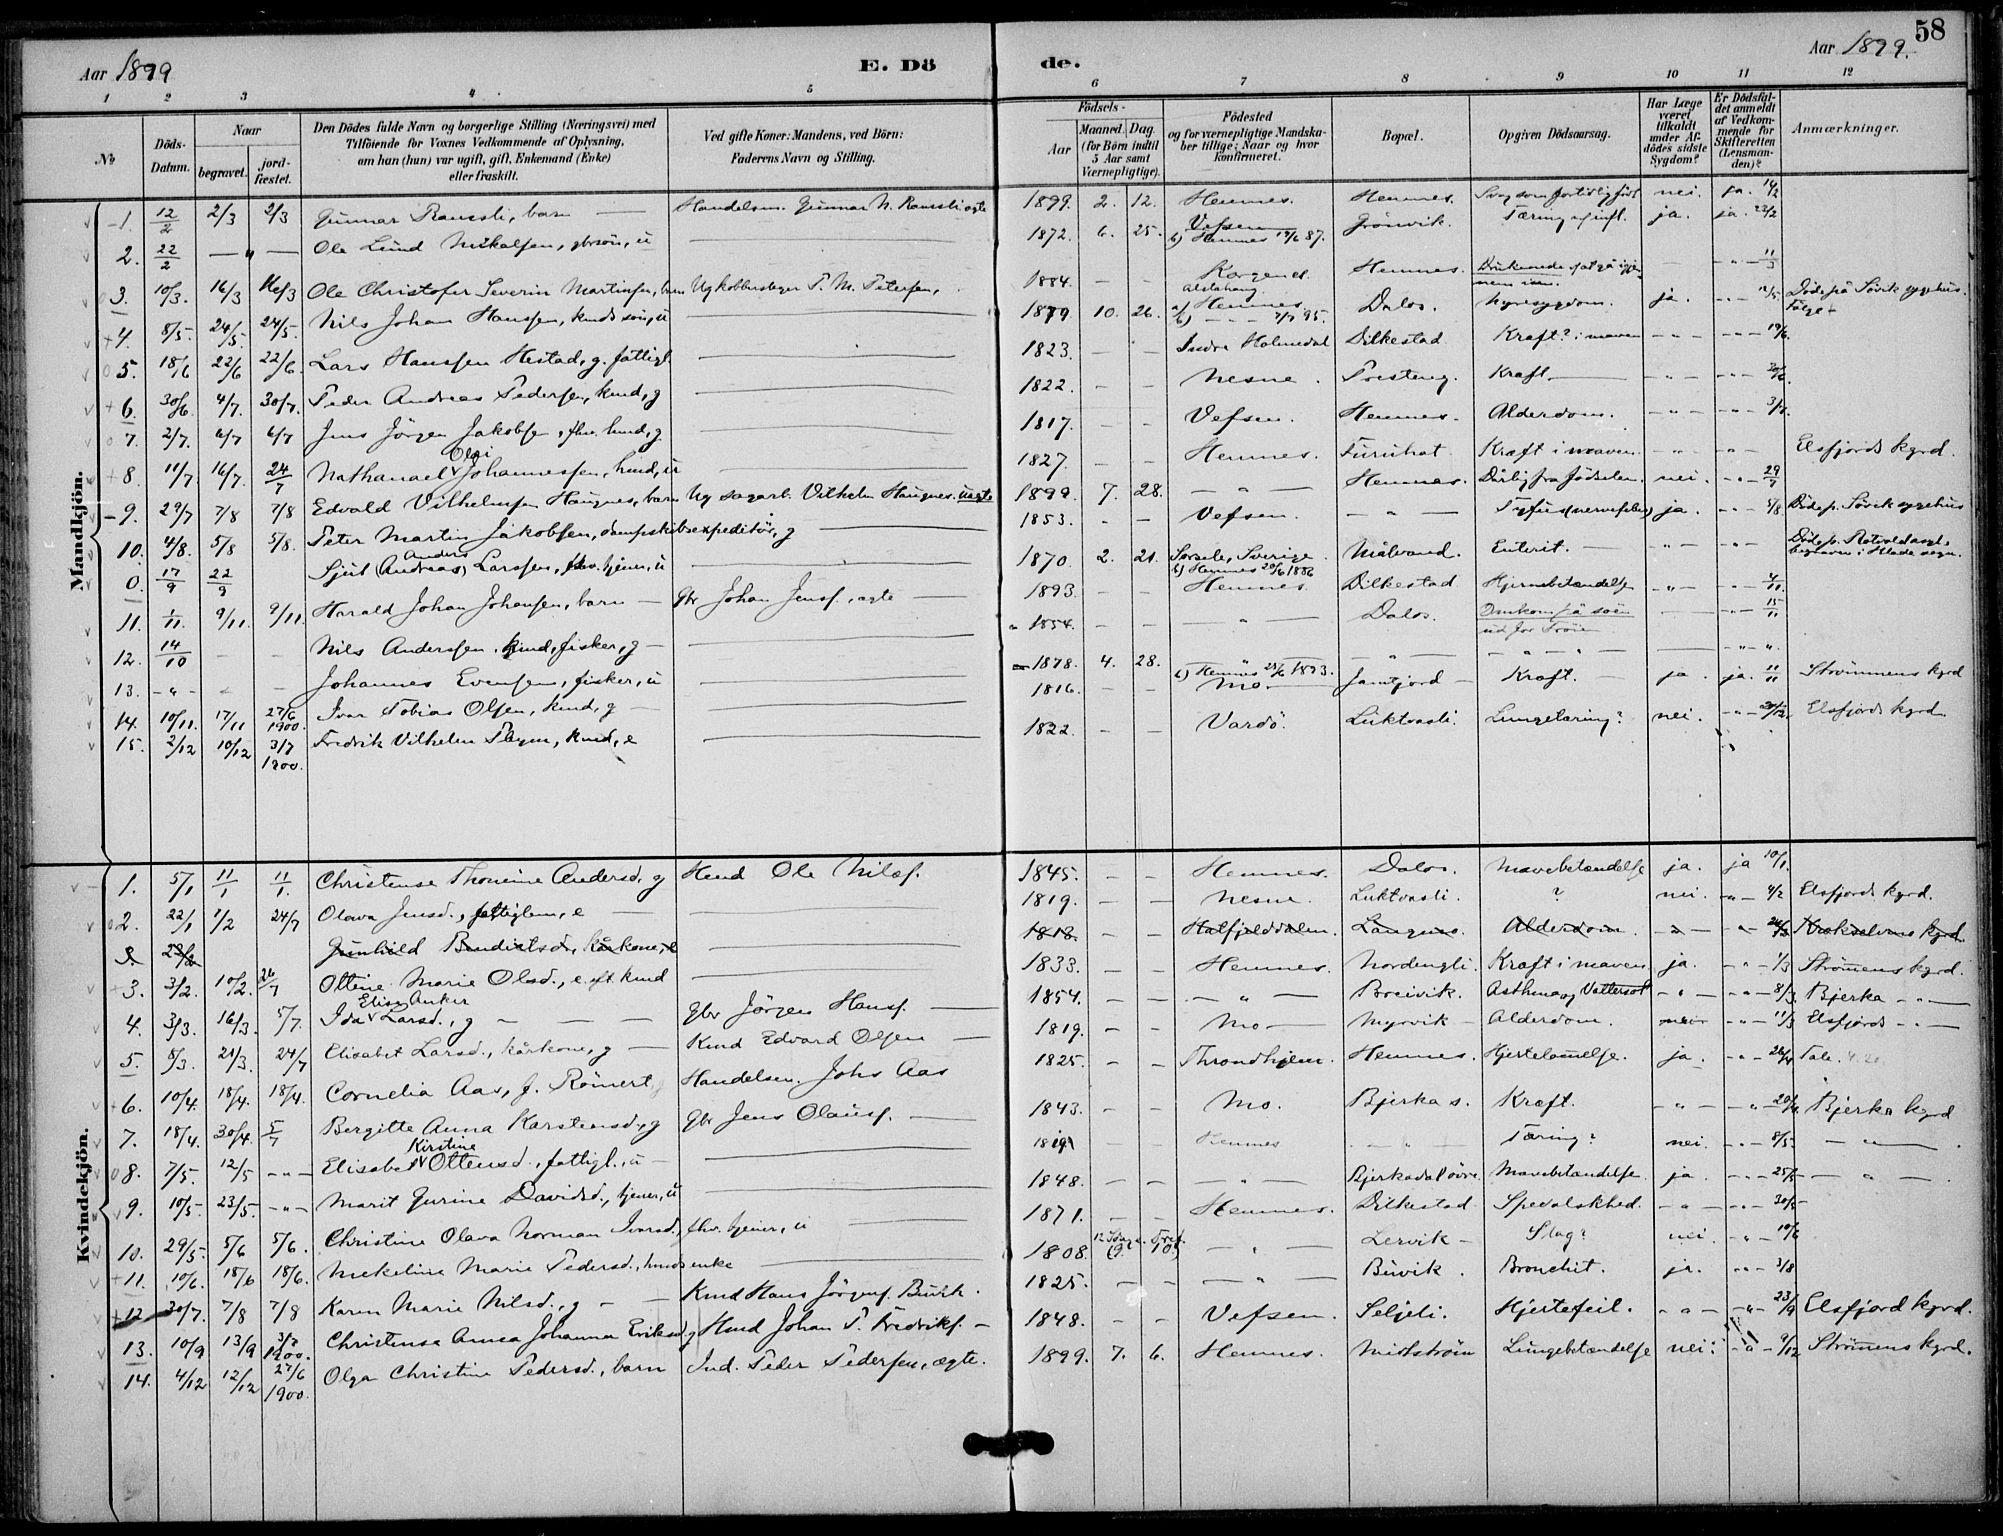 58
Aar 1899
E. Dö
de.
Aar 1899.
1 2 3 4 5 6 7 8 9 10 11 12
No
Döds-Datum.
Naar
begravet.
jord-fæstet.
Den Dödes fulde Navn og borgerlige Stilling (Næringsvei) med
Tilföiende for Voxnes Vedkommende af Oplysning,
om han (hun) var ugift, gift, Enkemand (Enke)
eller fraskilt.
Ved gifte Koner: Mandens, ved Börn:
Faderens Navn og Stilling.
Födsels-
Aar
Maaned. Dag.
(for Börn indtil
5 Aar samt
Værnepligtige).
Födested
og for værnepligtige Mandska-
ber tillige: Naar og hvor
konfirmeret.
Bopæl.
Opgiven Dödsaarsag.
Har Læge
været
tilkaldt
under Af-
dödes sidste
Sygdom?
Er Dödsfal-
det anmeldt
af Vedkom-
mende for
Skifteretten
(Lensman-
den)?
Anmærkninger.
Mandkjön.
1. 12/2 2/3 2/3 Gunnar Ranssli, barn — Handelsm. Gunnar N. Ranssli ægte 1899. 2. 12. Hemnes. Hemnes. nei. ja. 14/2
2. 22/2 — " — Ole Lund Mikalsen, gbrsön, u — 1872. 6. 25. Vefsen b) Hemnes 19/6 87. Grönvik. Tæring ja. ja. 23/2
3. 10/3. 16/3 16/3 Ole Christofer Severin Martinsen, barn Ug kobberslager P. M. Petersen, 1884. — — Korgen Hemnes. — - " - 11/3
4. 8/5. 24/5. 24/5. Nils Johan Hansen, kmds sön, u — Alstahaug. 1879 10. 26. a) Hemnes b) — 7/7 95. Dalos. Nyresygdom. ja. - " - 12/5 Döde på Sövik sygehus.
5. 18/6 22/6 22/6. Lars Hanssen Hestad, g. fattigl — 1823. — — Indre Holmedal Dilkestad Kræft? i maven - " - - " - 19/6.
6. 30/6. 4/7. 30/7. Peder Andreas Pedersen, kmd, g — 1822. — — Nesne. Kræft. — - " - - " - 30/6.
7. 2/7. 6/7 6/7 Jens Jörgen Jakobsen, fhv. kmd, g. — 1817. Vefsen. Hemnes. Alderdom. - " - - " - 3/7.
8. 11/7. 16/7. 24/7 Nathanael Olai Johannessen, kmd, u — 1827. — — Hemnes. Furuhat. Kræft i maven. - " - - " - Elsfjords kgrd.
9. 29/7 7/8 7/8 Edvald Vilhelmsen Haugnes, barn Ug sagarb. Vilhelm Haugnes. uægte 1899. 7. 28. — " — Hemnes. Dårlig fra fødselen. nei. - " - 29/7
10. 4/8. 5/8 5/8. Peter Martin Jakobsen, dampskibsexpeditör, g — 1853. — — Vefsen. — " — Tyfus (nervefeber) ja. - " - 5/8 Döde p. Sövik sygehus
0. 17/9 22/9 Sjul (Andreas) Anders Larssen, fhv. tjener, u — 1870. 2. 21. Sorsele, Sverige. b) Hemnes 20/6 1886 Målvand. Enterit. — - " - — Döde p. Rotvold asyl. begraven i Hlade sogn.
11. 1/11. 9/11. 9/11. Harald Johan Johansen, barn — Gbr Johan Jensf., ægte — 1893. — — Hemnes. Dilkestad Hjernebetændelse - " - - " - 4/11.
12. 14/10 — — Nils Andersen, kmd, fisker, g — 1854. — — — " — Dalos. Omkom på söen ud for Tröen — - " - 15/11
13. - " - — — Johannes Evensen, fisker, u — 1878. 4. 28. b) Hemnes 25/6 1893. — " — — " — " — — - " - "
14. 10/11. 17/11 27/6 1900. Ivar Tobias Olsen, kmd, g — 1816. — — Mo — Jamtjord — Kræft. — ja. ja. 11/11 Strömmens kgrd
15. 2/12 10/12 3/7 1900. Fredrik Vilhelm kmd, e — 1822. — — Vardö. Luktvasli. Lungetæring? nei. - " - 30/12. Elsfjords kgrd
Kvindekjön.
1. 5/1 11/1 11/1. Christense Thomine Andersd, g Kmd Ole Nilsf. 1845. — — Hemnes. Dalos. Mavebetændelse ja. ja 10/1.
2. 22/1 1/2 24/7 Olava Jensd., fattiglem, e — 1819. — — Nesne. Luktvasli. ? nei. - " - 4/2 Elsfjords kgrd.
Gunhild Bendiktsd., kårkone, e — 1818. — — Hatfjelddalen. Langnes. Alderdom. - " - kgrd.
3. 3/2. 10/2. 26/7 Ottine Marie Olsd., e. ft. kmd 1833. — — Hemnes. Nordengli. Kræft i maven ja. - " - 1/3 Strömens kgrd.
4. 3/3. 16/3. 5/7. Ida Elise Anker Larsd., g — — — Gbr Jörgen Hansf. — 1854. — — — " — Breivik. Asthma og Vattersot - " - - " - 8/3 Bjerka - " -
5. 5/3. 21/3. 24/7 Elisabet Larsd., kårkone, g — Kmd Edvard Olsen — 1819. — — Mo — Myrvik — Alderdom. nei - " - 11/3 Elsfjords - " -
6. 10/4. 18/4. 18/4. Cornelia Aas, f. Römert, g Handelsm. Johs Aas 1825. — — Throndhjem. Hemnes. Hjertelamelse. ja. - " - Tale.
7. 18/4. 30/4. 5/7 Bergitte Anna Karstensd., g Gbr Jens Olausf. — 1843. — — Mo. Bjerka s. Kræft. - " - - " - 20/4 Bjerka kgrd
8. 7/5. 12/5 - " - Elisabet Kirstine Ottensd., fattigl., u — Hemnes — " — Tæring? nei. - " - 8/5 — " — .
9. 10/5. 23/5. - " - Marit Gurine Davidsd., tjener, u — 1848. — — — " — Bjerkadal övre. Mavebetændelse. ja. - " - 25/5 — " — .
10. 29/5. 5/6 5/6. Christine Olava Norman Ivarsd., fhv. tjener, u — 1871. — — Hemnes. Dilkestad Spedalskhed. - " - - " - 30/5
11. 10/6. 18/6 18/6. Mekeline Marie Pedersd., kmds enke — 1808. — " — Lervik — Slag? nei. - " - 10/6
12 30/7. 7/8 7/8 Karen Marie Nilsd., g — — Kmd Hans Jörgenf. Buvik. 1825. — — — " — Buvik. Bronchit. ja. - " - 3/8
13. 10/9 13/9 3/7 1900. Christense Annea Johanna Eriksd., g Kmd Johan P. Fredriksf. — 1848. — — Vefsen. Seljeli. Hjertefeil. - " - - " - 23/9 Elsfjord kgrd.
14. 4/12 12/12 27/6 1900. Olga Christine Pedersd., barn Ind. Peder Pedersen, ægte. 1899. 7. 6. Hemnes. Midtström Lungebetændelse nei. - " - 9/12 Strömens kgrd.